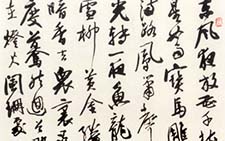 東風夜放花千樹
星如雨寶馬雕
滿路鳳簫聲
光轉一夜魚龍
雪柳黃金縷
暗香去眾裏尋
度驀然迴首
在燈火闌珊處